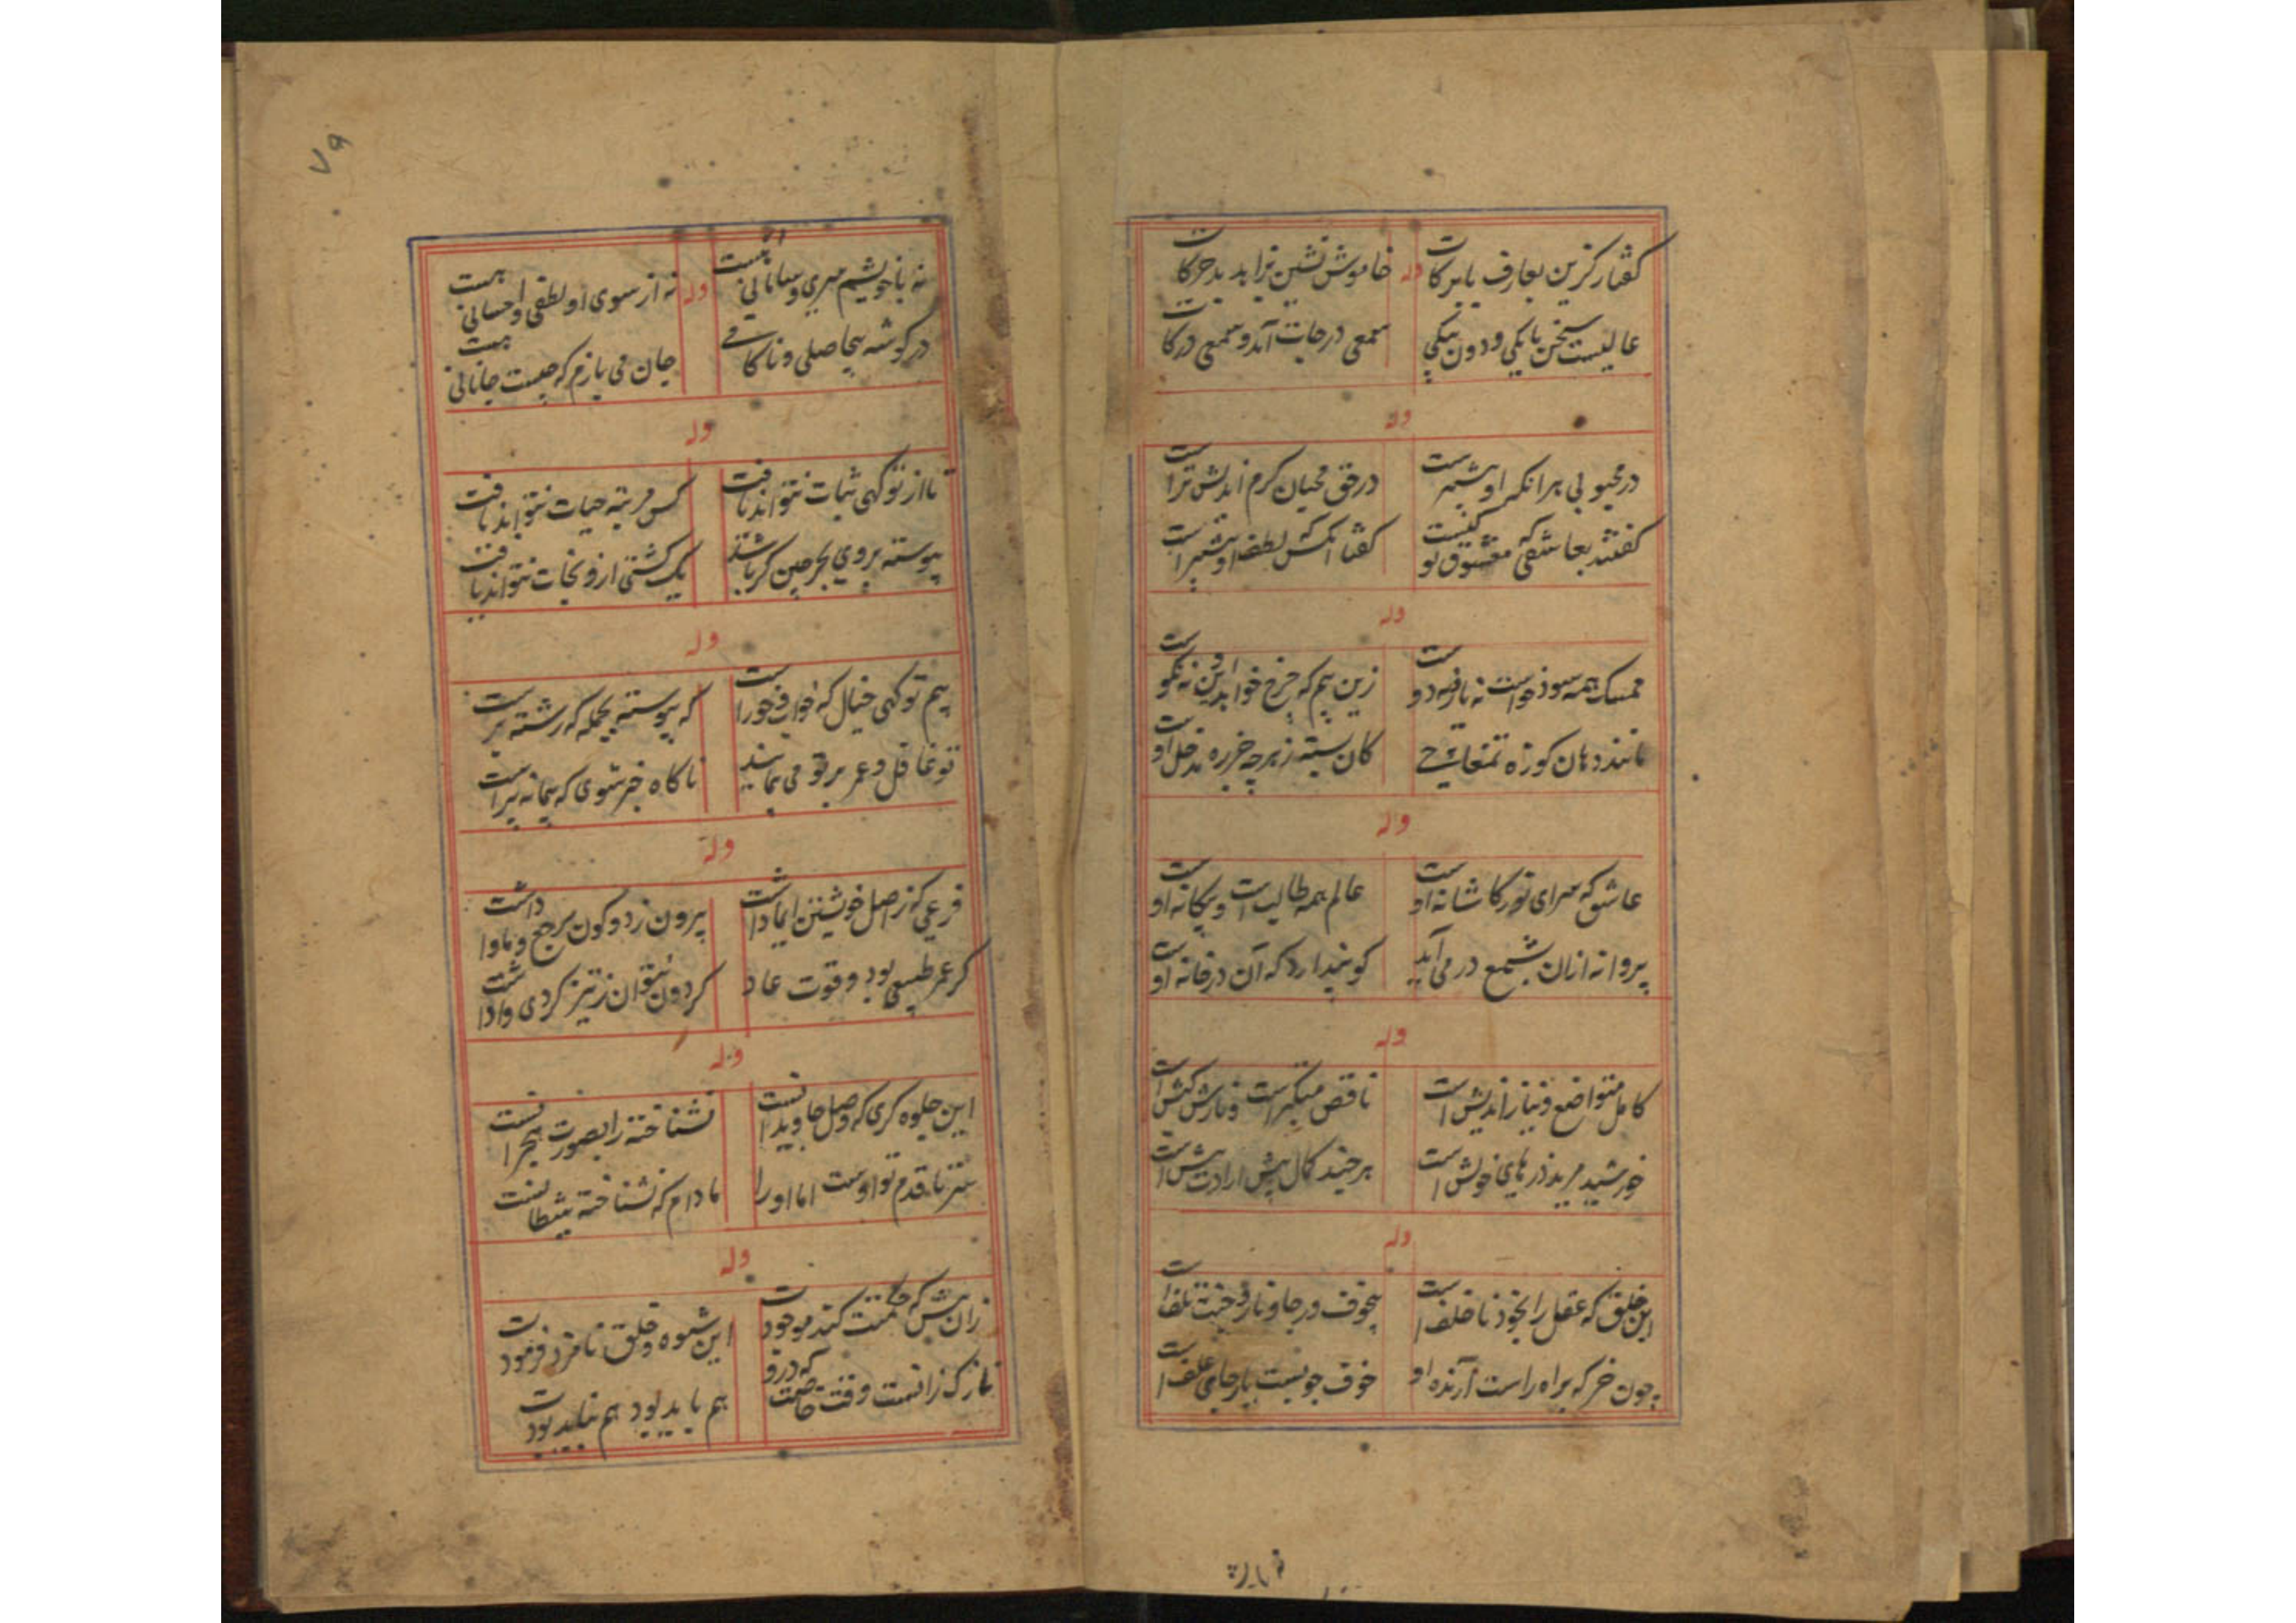 گفتار گزین بعارف بابرکات
خاموش نشین ترا بد بد حرکات
وله
عالیست سخن بانکی و دون بیکی
سمعی درجات آمد و سمعی درکات
وله
در محبوبی هر انکه او بیشتر است
در حق محبان کرم اندیش تر است
گفتند بعاشقی که معشوق تو کیست
گفتا آنکس که لطف او بیشتر است
وله
ممسک همه سود خواست نه یافه دو است
زین بیم که چرخ خواند این نه نکو است
مانند دهان کوزه تمغاچی
کان بسته ز هر چه خز ره مدخل اوست
وله
عاشق که سرای نور کاشانه اوست
عالم همه طالب است و بیگانه اوست
پروانه ازان بشمع در می آید
کو پندارد که آن در خانه اوست
وله
کامل متواضع و نیاز اندیش است
ناقص متکبر است و نازش کیش است
خورشید مرید ذرهای خویش است
هر چند کمال بیش ارادت بیش است
وله
این خلق که عقل را بخود ناخلف است
بیخوف و رجا و نار و جنت تلف است
چون خر که براه راست آرنده او
خوف چوبست یا رجای علف است
نه با خویشم سری و سامانی هست
وله
نه از سوی او لطفی و احسانی هست
در گوشه بیحاصلی و ناکامی
جان می بازم که چیست جانانی هست
وله
تا از تو گهی ثبات نتواند یافت
کس مرتبه حیات نتواند یافت
پیوسته بروی بحر چین گر باشد
یک کشتی ازو نجات نتواند یافت
وله
بیم تو گهی خیال که خواب و خور است
که پیوسته بجمله که رشته بر است
تو غافل و عمر بر تو می پیماید
ناگاه خبر شوی که پیمانه پر است
وله
فرعی که ز اصل خویشتن ایما داشت
بیرون ز دو کون مرجع و ماوا داشت
گر عمر طبیعی بود و قوت عاد
گردون نتوان ز تیز گردی وا داشت
وله
این جلوه گری که وصل جاویدانست
نشناخته را بصورت هجرانست
ستر تا قدم تو اوست اما او را
مادام که نشناخته شیطانست
وله
زان پیش که حکمتت کند موجودت
این شیوه و خلق نامزد فرمودت
نازک زانست وقت خاصت که درو
هم باید بود هم نباید بودت